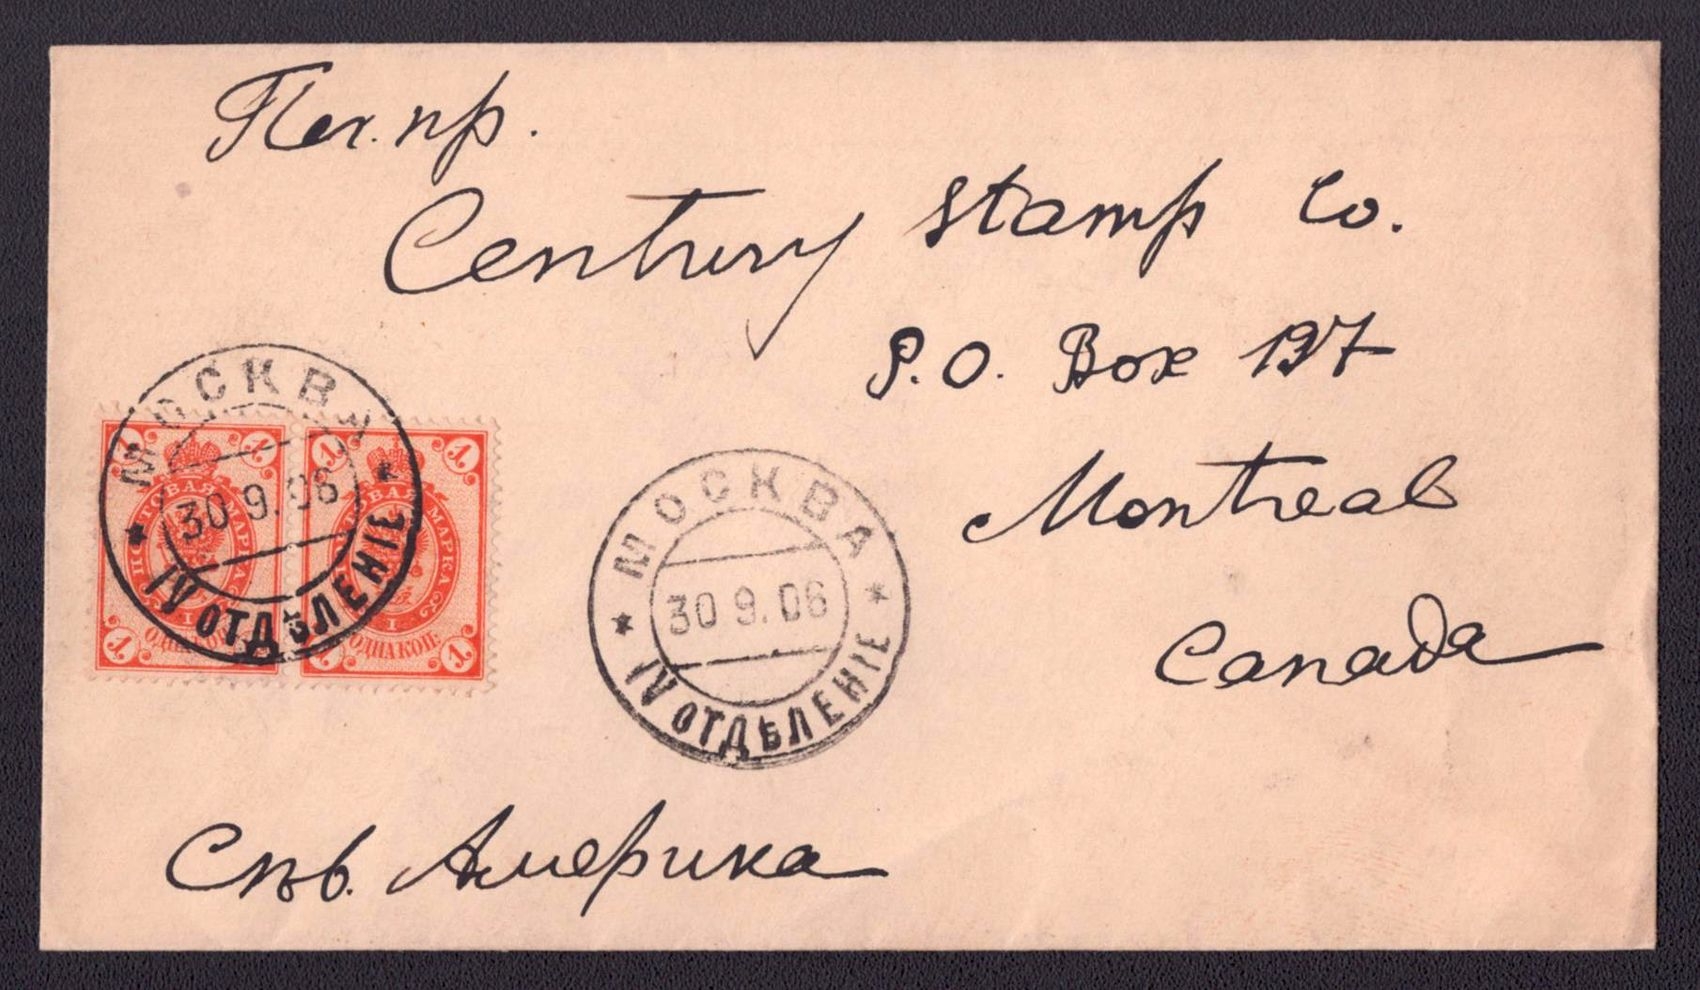 Печ. пр.
Century Stamp Co.
P.O. Box 197
Montreal
Canada
МОСКВА
30 9.06
IV ОТДѢЛЕНІЕ
МОСКВА
30 9.06
IV ОТДѢЛЕНІЕ
1 1
ПОЧТОВАЯ МАРКА
1
ОДНА КОП.
1 1
1 1
ПОЧТОВАЯ МАРКА
1
ОДНА КОП.
1 1
Сѣв. Америка